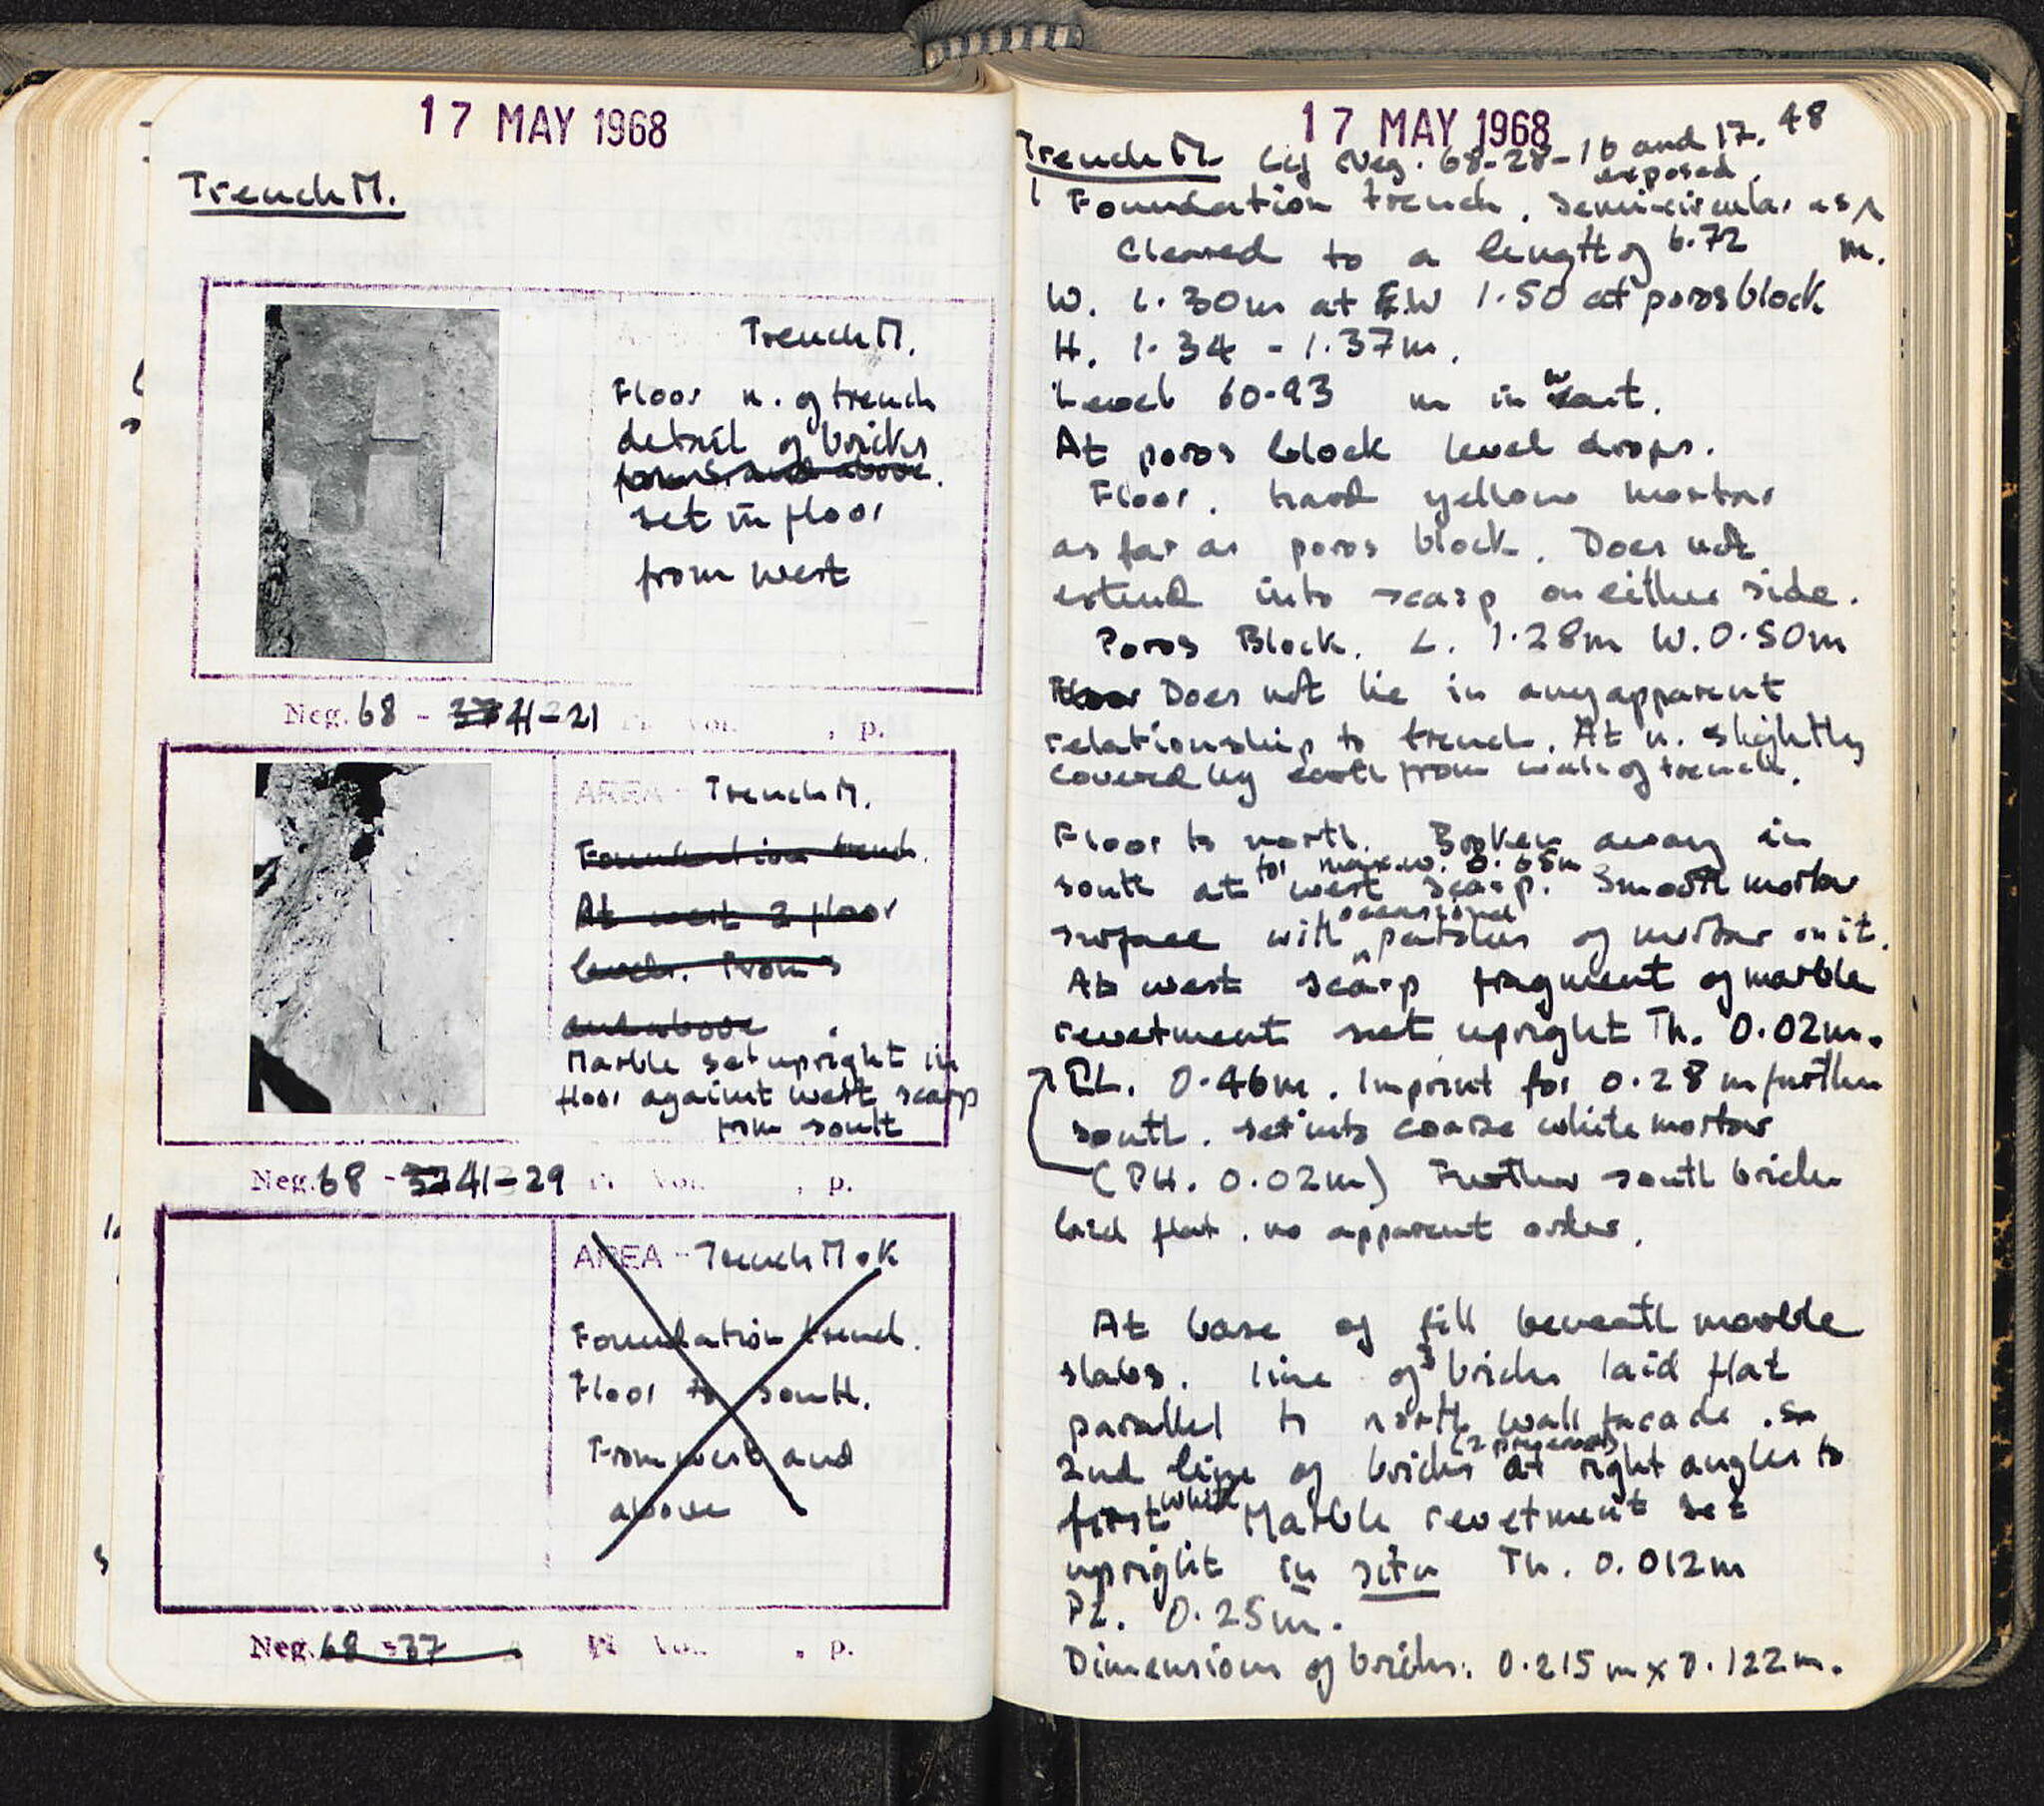 17 MAY 1968
Trench M.
Trench M.
Floor n. of trench
detail of bricks
from S. and above.
set in floor
from west
Neg. 68 - 37 41-21 Pl Vol. , p.
AREA - Trench M.
Foundation trench.
At west 2 floor
levels. From S
and above
Marble set upright in
floor against west scarp
from south
Neg. 68 - 37 41-29 Vol. , p.
AREA - Trench M K
Foundation trench.
Floor to south.
From west and
above
Neg. 68 - 37 Pl Vol. , p.
17 MAY 1968 48
Trench M. Cf Neg. 68-28-16 and 17.
Foundation trench. Semi-circular as exposed.
Cleared to a length of 6.72 m.
W. 1.30m at W 1.50 at poros block
H. 1.34 - 1.37m.
Level 60.93 m in west.
At poros block level drops.
Floor. hard yellow mortar
as far as poros block. Does not
extend into scarp on either side.
Poros Block. L. 1.28m W. 0.50m
Floor Does not lie in any apparent
relationship to trench. At n. slightly
covered by earth from wall of trench.
Floor to north. Broken away in
south at west scarp. for max. w. 0.65m Smooth mortar
surface with occasional patches of mortar on it.
At west scarp fragment of marble
revetment set upright Th. 0.02m.
PL. 0.46m. Imprint for 0.28m further
south. set into coarse white mortar
(PH. 0.02m) Further south bricks
laid flat. no apparent order.
At base of fill beneath marble
slabs. line of 3 bricks laid flat
parallel to north wall facade.
2nd line of bricks (2 preserved) at right angles to
first. White Marble revetment set
upright in situ Th. 0.012m
PL. 0.25m.
Dimensions of bricks: 0.215m x 0.122m.